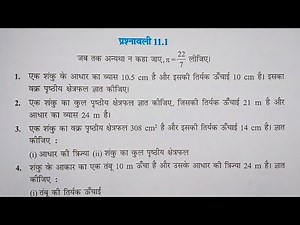 प्रश्नावली 11.1
जब तक अन्यथा न कहा जाए, π = 22/7 लीजिए।
1. एक शंकु के आधार का व्यास 10.5 cm है और इसकी तिर्यक ऊँचाई 10 cm है। इसका
वक्र पृष्ठीय क्षेत्रफल ज्ञात कीजिए।
2. एक शंकु का कुल पृष्ठीय क्षेत्रफल ज्ञात कीजिए, जिसकी तिर्यक ऊँचाई 21 m है और
आधार का व्यास 24 m है।
3. एक शंकु का वक्र पृष्ठीय क्षेत्रफल 308 cm² है और इसकी तिर्यक ऊँचाई 14 cm है। ज्ञात
कीजिए :
(i) आधार की त्रिज्या (ii) शंकु का कुल पृष्ठीय क्षेत्रफल
4. शंकु के आकार का एक तंबू 10 m ऊँचा है और उसके आधार की त्रिज्या 24 m है। ज्ञात
कीजिए :
(i) तंबू की तिर्यक ऊँचाई